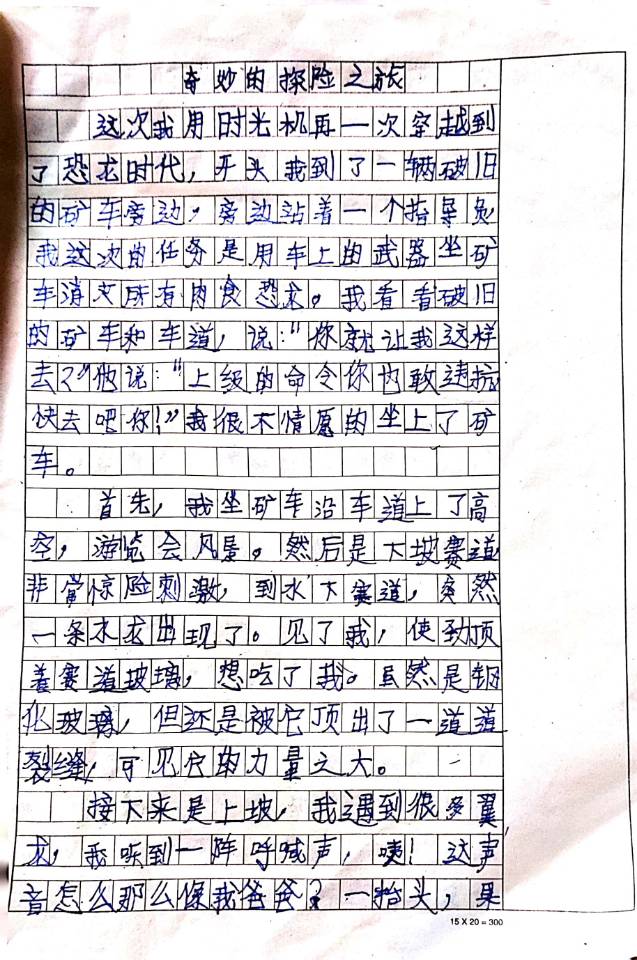 奇妙的探险之旅
这次我用时光机再一次穿越到
了恐龙时代，开头我到了一辆破旧
的矿车旁边，旁边站着一个指导员
我这次的任务是用车上的武器坐矿
车消灭所有肉食恐龙。我看看破旧
的矿车和车道，说："你就让我这样
去？"他说："上级的命令你也敢违抗
快去吧你！"我很不情愿的坐上了矿
车。
首先，我坐矿车沿车道上了高
空，游览会风景。然后是下坡赛道
非常惊险刺激，到水下赛道，突然
一条水龙出现了。见了我，使劲顶
着赛道玻璃，想吃了我。虽然是钢
化玻璃，但还是被它顶出了一道道
裂缝，可见它的力量之大。
接下来是上坡，我遇到很多翼
龙，我听到一阵呼喊声，咦！这声
音怎么那么像我爸爸？一抬头，果
15 X 20 = 300